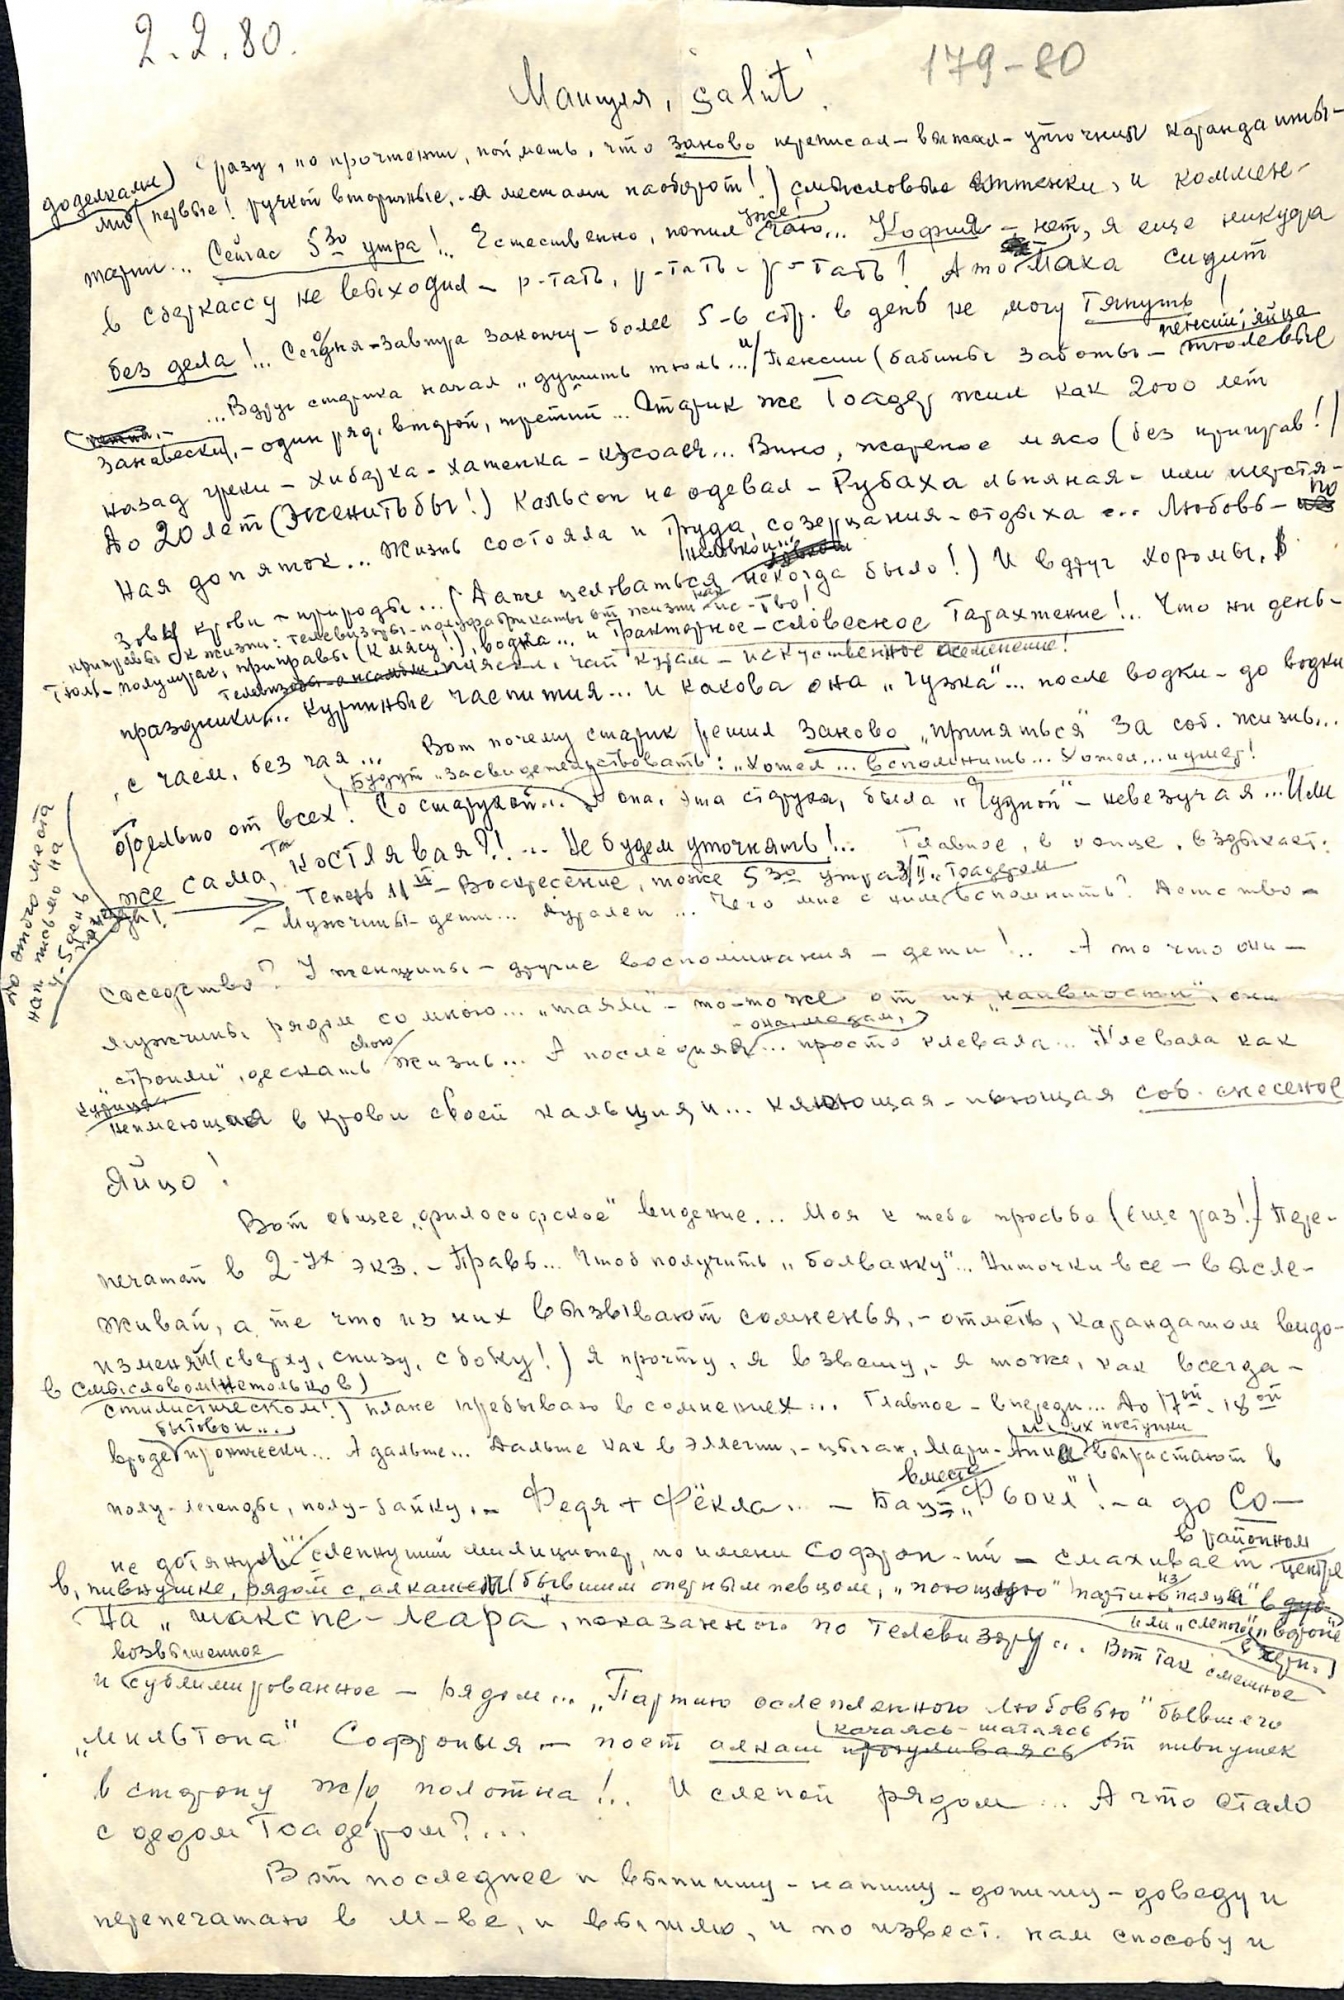 2.2.80.
179-80
Манция, salut!
Сразу, по прочтении, поймешь, что заново переписал – выжал – уточнил карандашны-
доделками)
ми (первые! ручкой вторичные, – а местами наоборот!) смысловые оттенки, и коммен-
тарии... Сейчас 5 30 утра!.. Естественно, попил уже! чаю... Кофия – нет, я еще никуда
в сберкассу не выходил – р-тать, р-тать – р-тать! А то Маха сидит
без дела!... Сегодня – завтра закончу – более 5-6 стр. в день не могу тянуть!
...Вдруг старика начал „душить тюль"... и пенсии (бабины заботы – пенсии; яйца тюлевые
занавески, – один ряд, второй, третий... Старик же Тоадер жил как 2000 лет
назад греки – хибарка – хатенка – ... Вино, жареное мясо (без приправ!)
До 20 лет (Женитьбы!) Кальсон не одевал – Рубаха льняная – или шерстя-
ная до пяток... Жизнь состояла и труда, созерцания – отдыха ... Любовь – по
зову крови – природы... (Даже целоваться некогда было!) И вдруг хоромы,
приправы к жизни: телевизоры – полуфабрикаты от жизни – ис-тво!
Тюль – полумрак, приправы (к мясу!), водка... и Тракторное – словесное Тарахтение!.. Что ни день –
чай курам – искусственное осеменение!
праздники... куриные чаепития... и какова она „Гузка"... после водки – до водки
, с чаем, без чая... Вот почему старик решил заново „приняться" за соб. жизнь...
Будут „засвидетельствовать": „Хотел... вспомнить... Хотел... и умер!
отдельно от всех! Со старухой... а она, эта старуха, была „Чудной" – невезучая... Или
же сама, Так костлявая?!... Не будем уточнять!.. Главное, в конце, вздыхает:
Теперь – Воскресение, тоже 5 30 утра „Тоадером
– Мужчины – дети... Дурален... Чего мне с ним вспомнить? Детство –
до этого места
написьмо на
4-5 день
соседство? У женщины – другие воспоминания – дети!.. А то что они –
мужчины рядом со мною... „таяли" – то-тоже от их „наивности", они
„строили", дескать свою жизнь... А последняя – она, мадам, ... просто клевала... Клевала как
неимеющая в крови своей кальция и... клюющая – пьющая соб. снесеное
Яйцо!
Вот общее „философское" видение... Моя к тебе просьба (еще раз!) Пере-
печатай в 2-ух экз. – Правь... Чтоб получить „болванку"... Ниточки все – высле-
живай, а те что из них вызывают сомненья, – отметь, карандашом видо-
изменяй (сверху, снизу, сбоку!) Я прочту, я взвешу, – я тоже, как всегда –
в смысловом (не только в)
стилистическом!) плане пребываю в сомнениях... Главное – впереди... До 17ой – 18ой
бытовой...
вроде иронически... А дальше... Дальше как в Элегии, – цыган, Мари-Анна и их поступки вырастают в
полу-легенды, полу-байку, – Федя + Фёкла... – Бац – вместе „Фвокл"! – а до Со –
не дотянул... слепнущий милиционер, по имени Софрон-ий – смахивает в районном центре
в, пивнушке, рядом с алкашем (бывшим оперным певцом, „поющую" партию из „паяца" в
На „шакспе-Леара", показанного по телевизору... Вот так смешное
или „слепого"
возвышенное
и сублимированное – рядом... „Партию ослепленного любовью" бывшего
„мильтона" Софрония – поет алкаш качаясь – шатаясь от пивнушек
в сторону ж/д полотна!.. И слепой рядом... А что стало
с дедом Тоадером?...
Вот последнее и выпишу – напишу – допишу – доведу и
перепечатаю в М-ве, и вышлю, и по извест. нам способу и